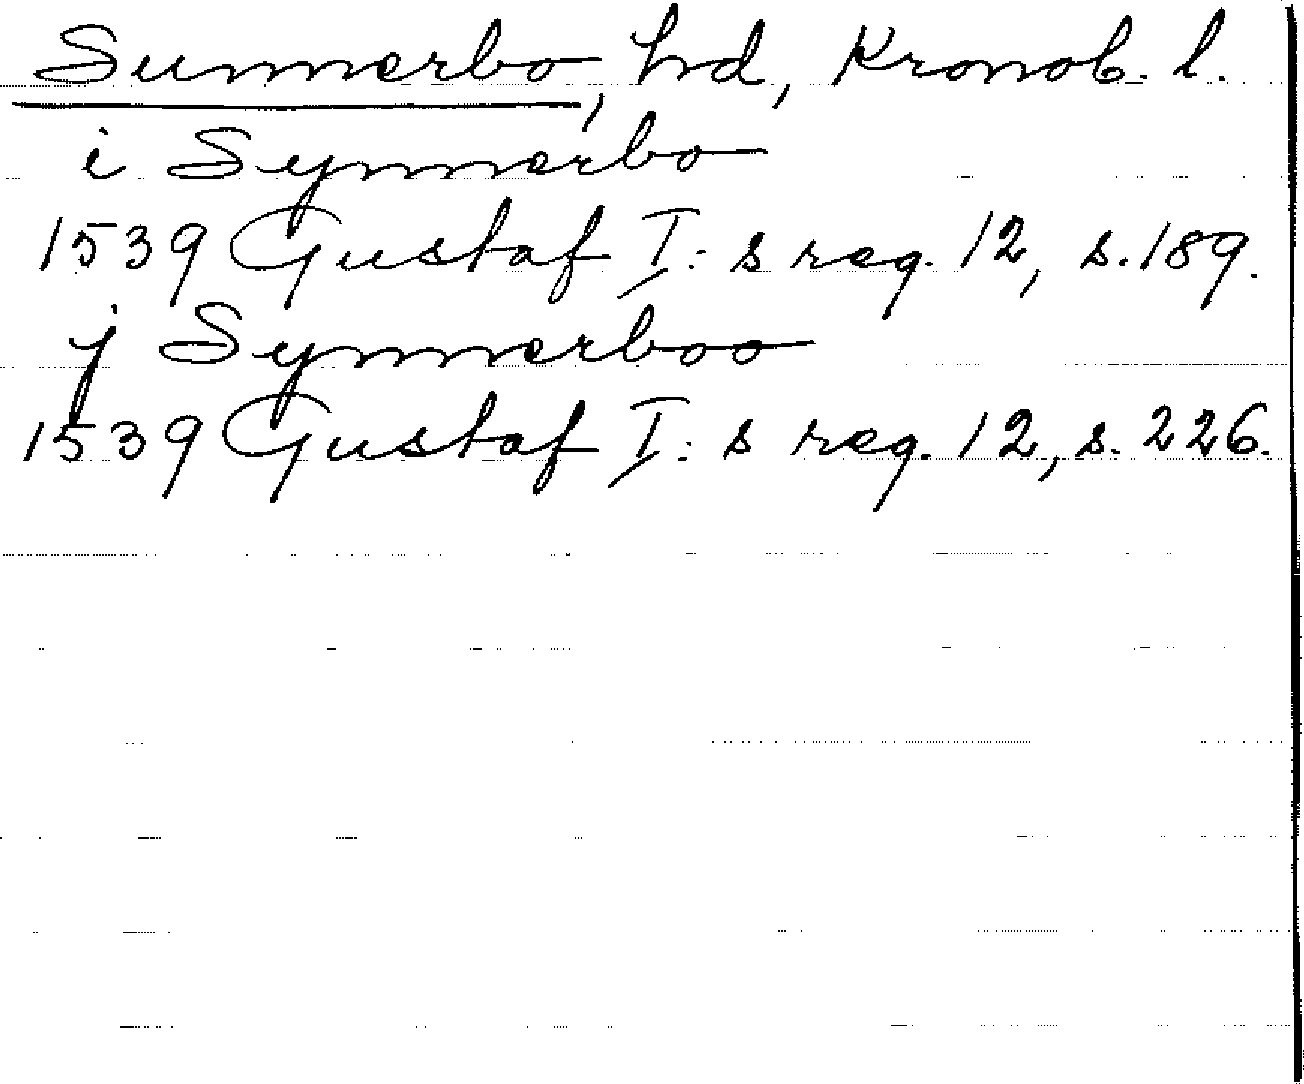 Sunnerbo, hd, Kronob. l.
i Synnerbo
1539 Gustaf I:s reg. 12, s. 189.
j Synnerboo
1539 Gustaf I:s reg. 12, s. 226.